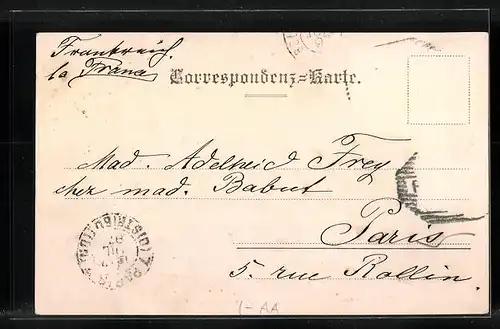 Frankreich.
la France
Correspondenz-Karte.
Mad. Adelheid Frey
chez mad. Babut
Paris
5. rue Rollin.
PARIS DISTRIBUTION
1-AA